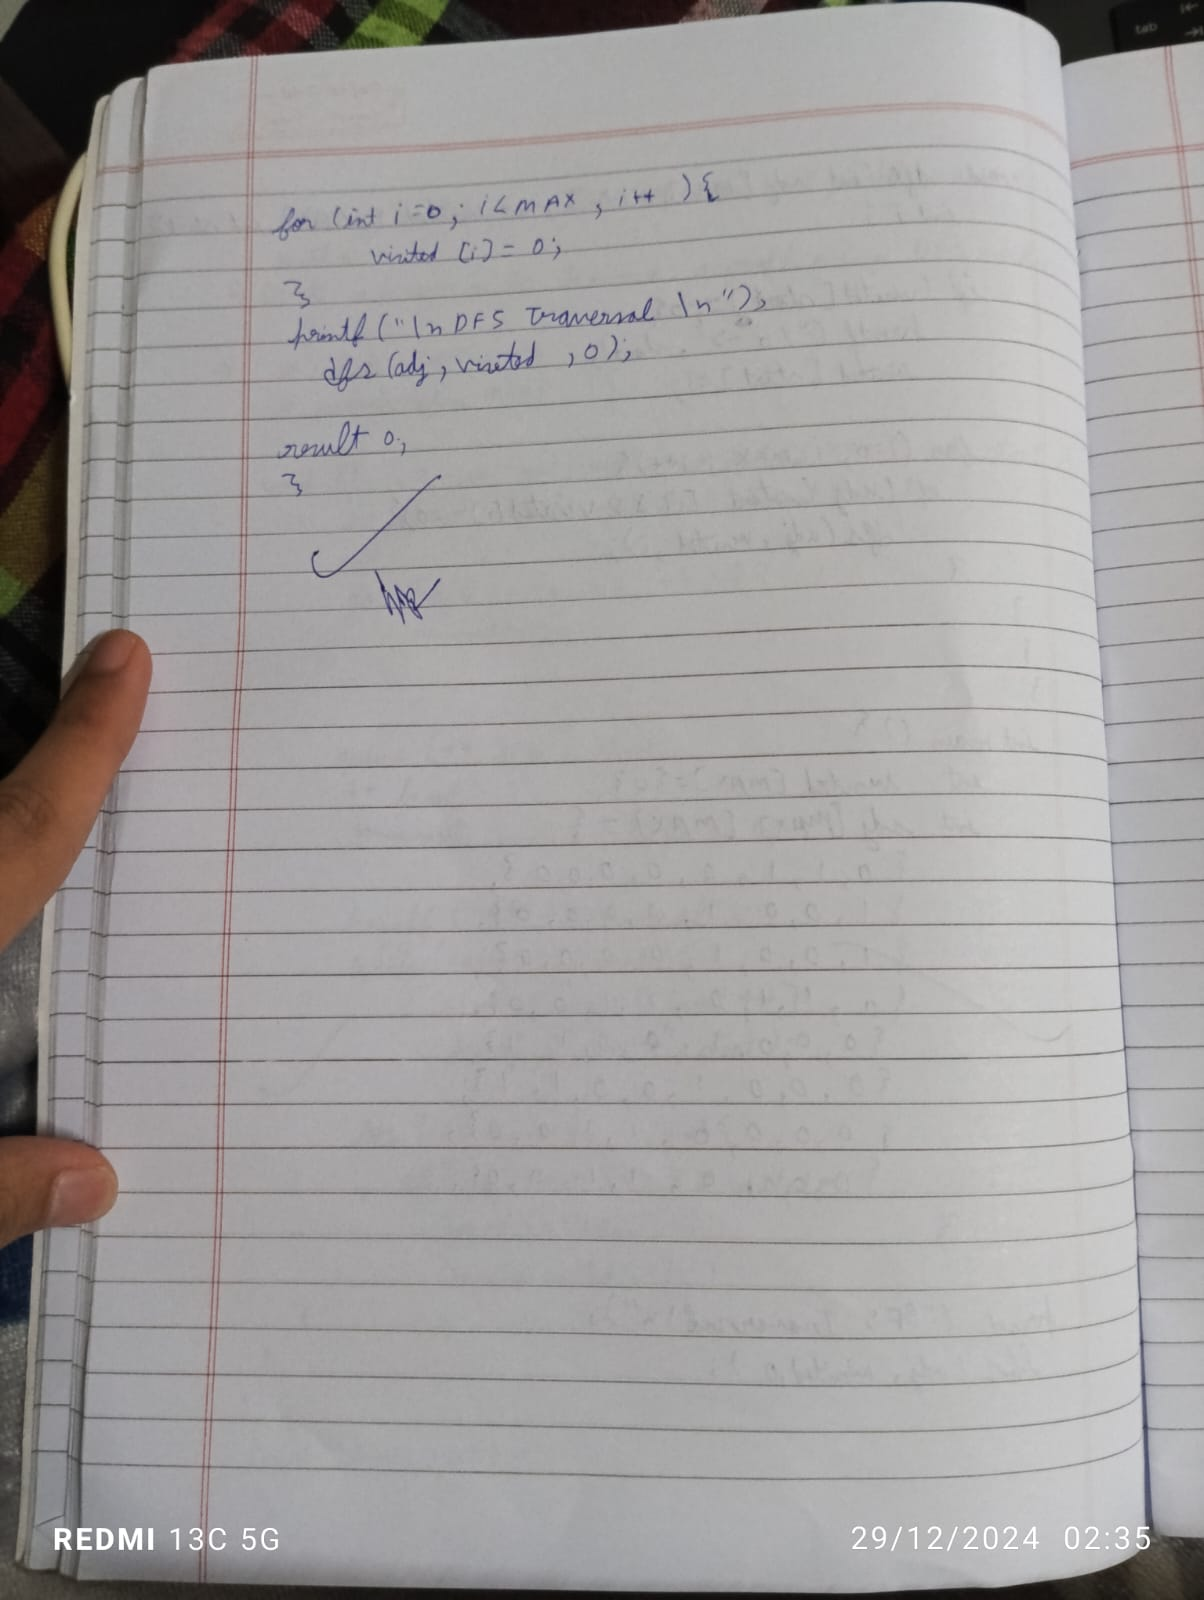 tab
for (int i=0; i<MAX, i++ ){
visited [i]= 0;
}
printf ("\n DFS Traversal \n");
dfs (adj, visited ,0);
result 0;
}
REDMI 13C 5G
29/12/2024 02:35